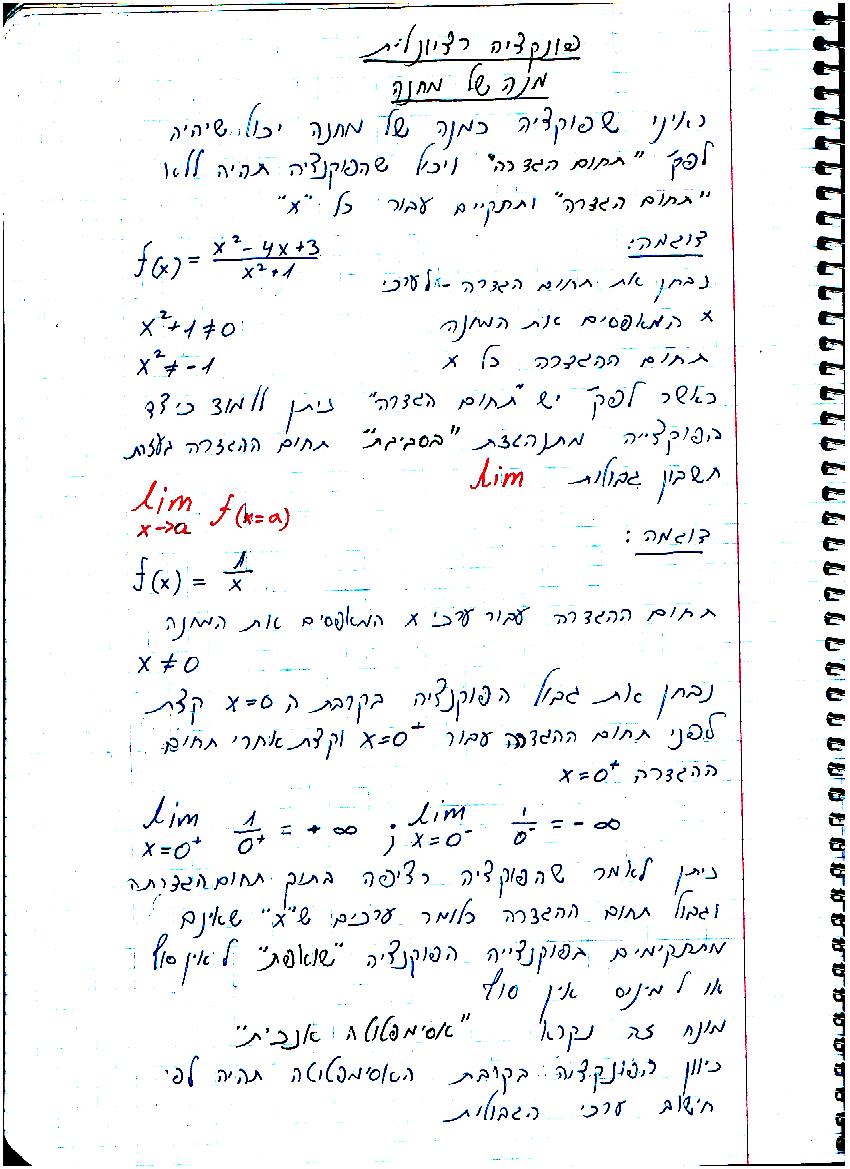 פונקציה רציונלית
מנה של מחנה
ראיני שפוקציה כמנה של מחנה יכול שיהיה
לפק' "תחום הגדרה" ויכול שהפוקנציה תהיה ללא
"תחום הגדרה" ותתקיים עבור כל "x"
דוגמה:
f(x) = \frac{x² - 4x + 3}{x² + 1}
נבחן את תחום הגדרה - לערכי
x המאפסים את המחנה x² + 1 ≠ 0
תחום ההגדרה כל x x² ≠ -1
כאשר לפק' יש "תחום הגדרה" ניתן ללמוד כיצד
הפוקצייה מתנהגת "בסביבת" תחום ההגדרה בעזרת
חשבון גבולות lim
lim x→a f(x=a)
דוגמה:
f(x) = \frac{1}{x}
תחום ההגדרה עבור ערכי x המאפסים את המחנה
x ≠ 0
נבחן את גבול הפוקנציה בקרבת ה x=0 קצת
לפני תחום ההגדרה עבור x=0⁺ וקצת אחרי תחום
ההגדרה x=0⁺
lim x=0⁺ \frac{1}{0⁺} = +∞ ; lim x=0⁻ \frac{1}{0⁻} = -∞
ניתן לאמר שהפוקציה רציפה בתוך תחום הגדרתה
וגבול תחום ההגדרה כלומר ערכים ש"x" שאינם
מתתקימים בפוקנצייה הפוקנציה "שואפת" ל אין סוף
או ל מינוס אין סוף
מונח זה נקרא "אסימפטוטה אנכית"
כיוון הפונקציה בקרבת האסימפטוטה תהיה לפי
חישוב ערכי הגבולות